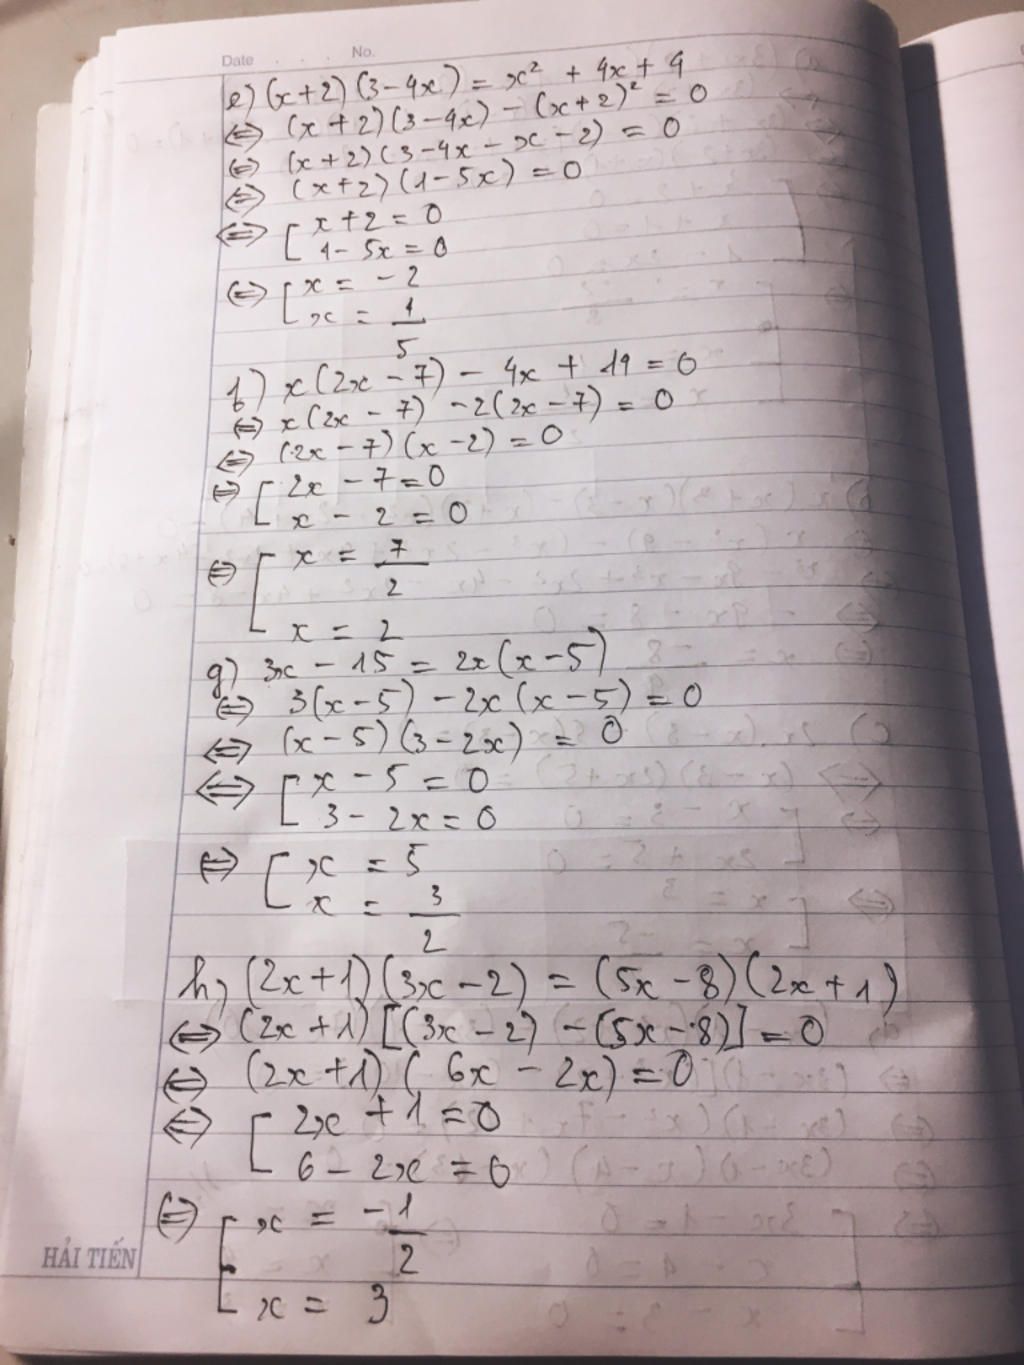 Date . . . No.
e) (x+2)(3-4x) = x² + 4x + 4
⇔ (x+2)(3-4x) - (x+2)² = 0
⇔ (x+2)(3-4x-x-2) = 0
⇔ (x+2)(1-5x) = 0
⇔ [ x+2 = 0
1-5x = 0
⇔ [ x = -2
x = 1/5
f) x(2x-7) - 4x + 19 = 0
⇔ x(2x-7) -2(2x-7) = 0
⇔ (2x-7)(x-2) = 0
⇔ [ 2x-7=0
x-2 = 0
⇔ [ x = 7/2
x = 2
g) 3x - 15 = 2x(x-5)
⇔ 3(x-5) - 2x(x-5) = 0
⇔ (x-5)(3-2x) = 0
⇔ [ x-5 = 0
3-2x = 0
⇔ [ x = 5
x = 3/2
h, (2x+1)(3x-2) = (5x-8)(2x+1)
⇔ (2x+1)[(3x-2) -(5x-8)] = 0
⇔ (2x+1)(6x-2x) = 0
⇔ [ 2x+1=0
6-2x = 0
⇔ [ x = -1/2
x = 3
HẢI TIẾN